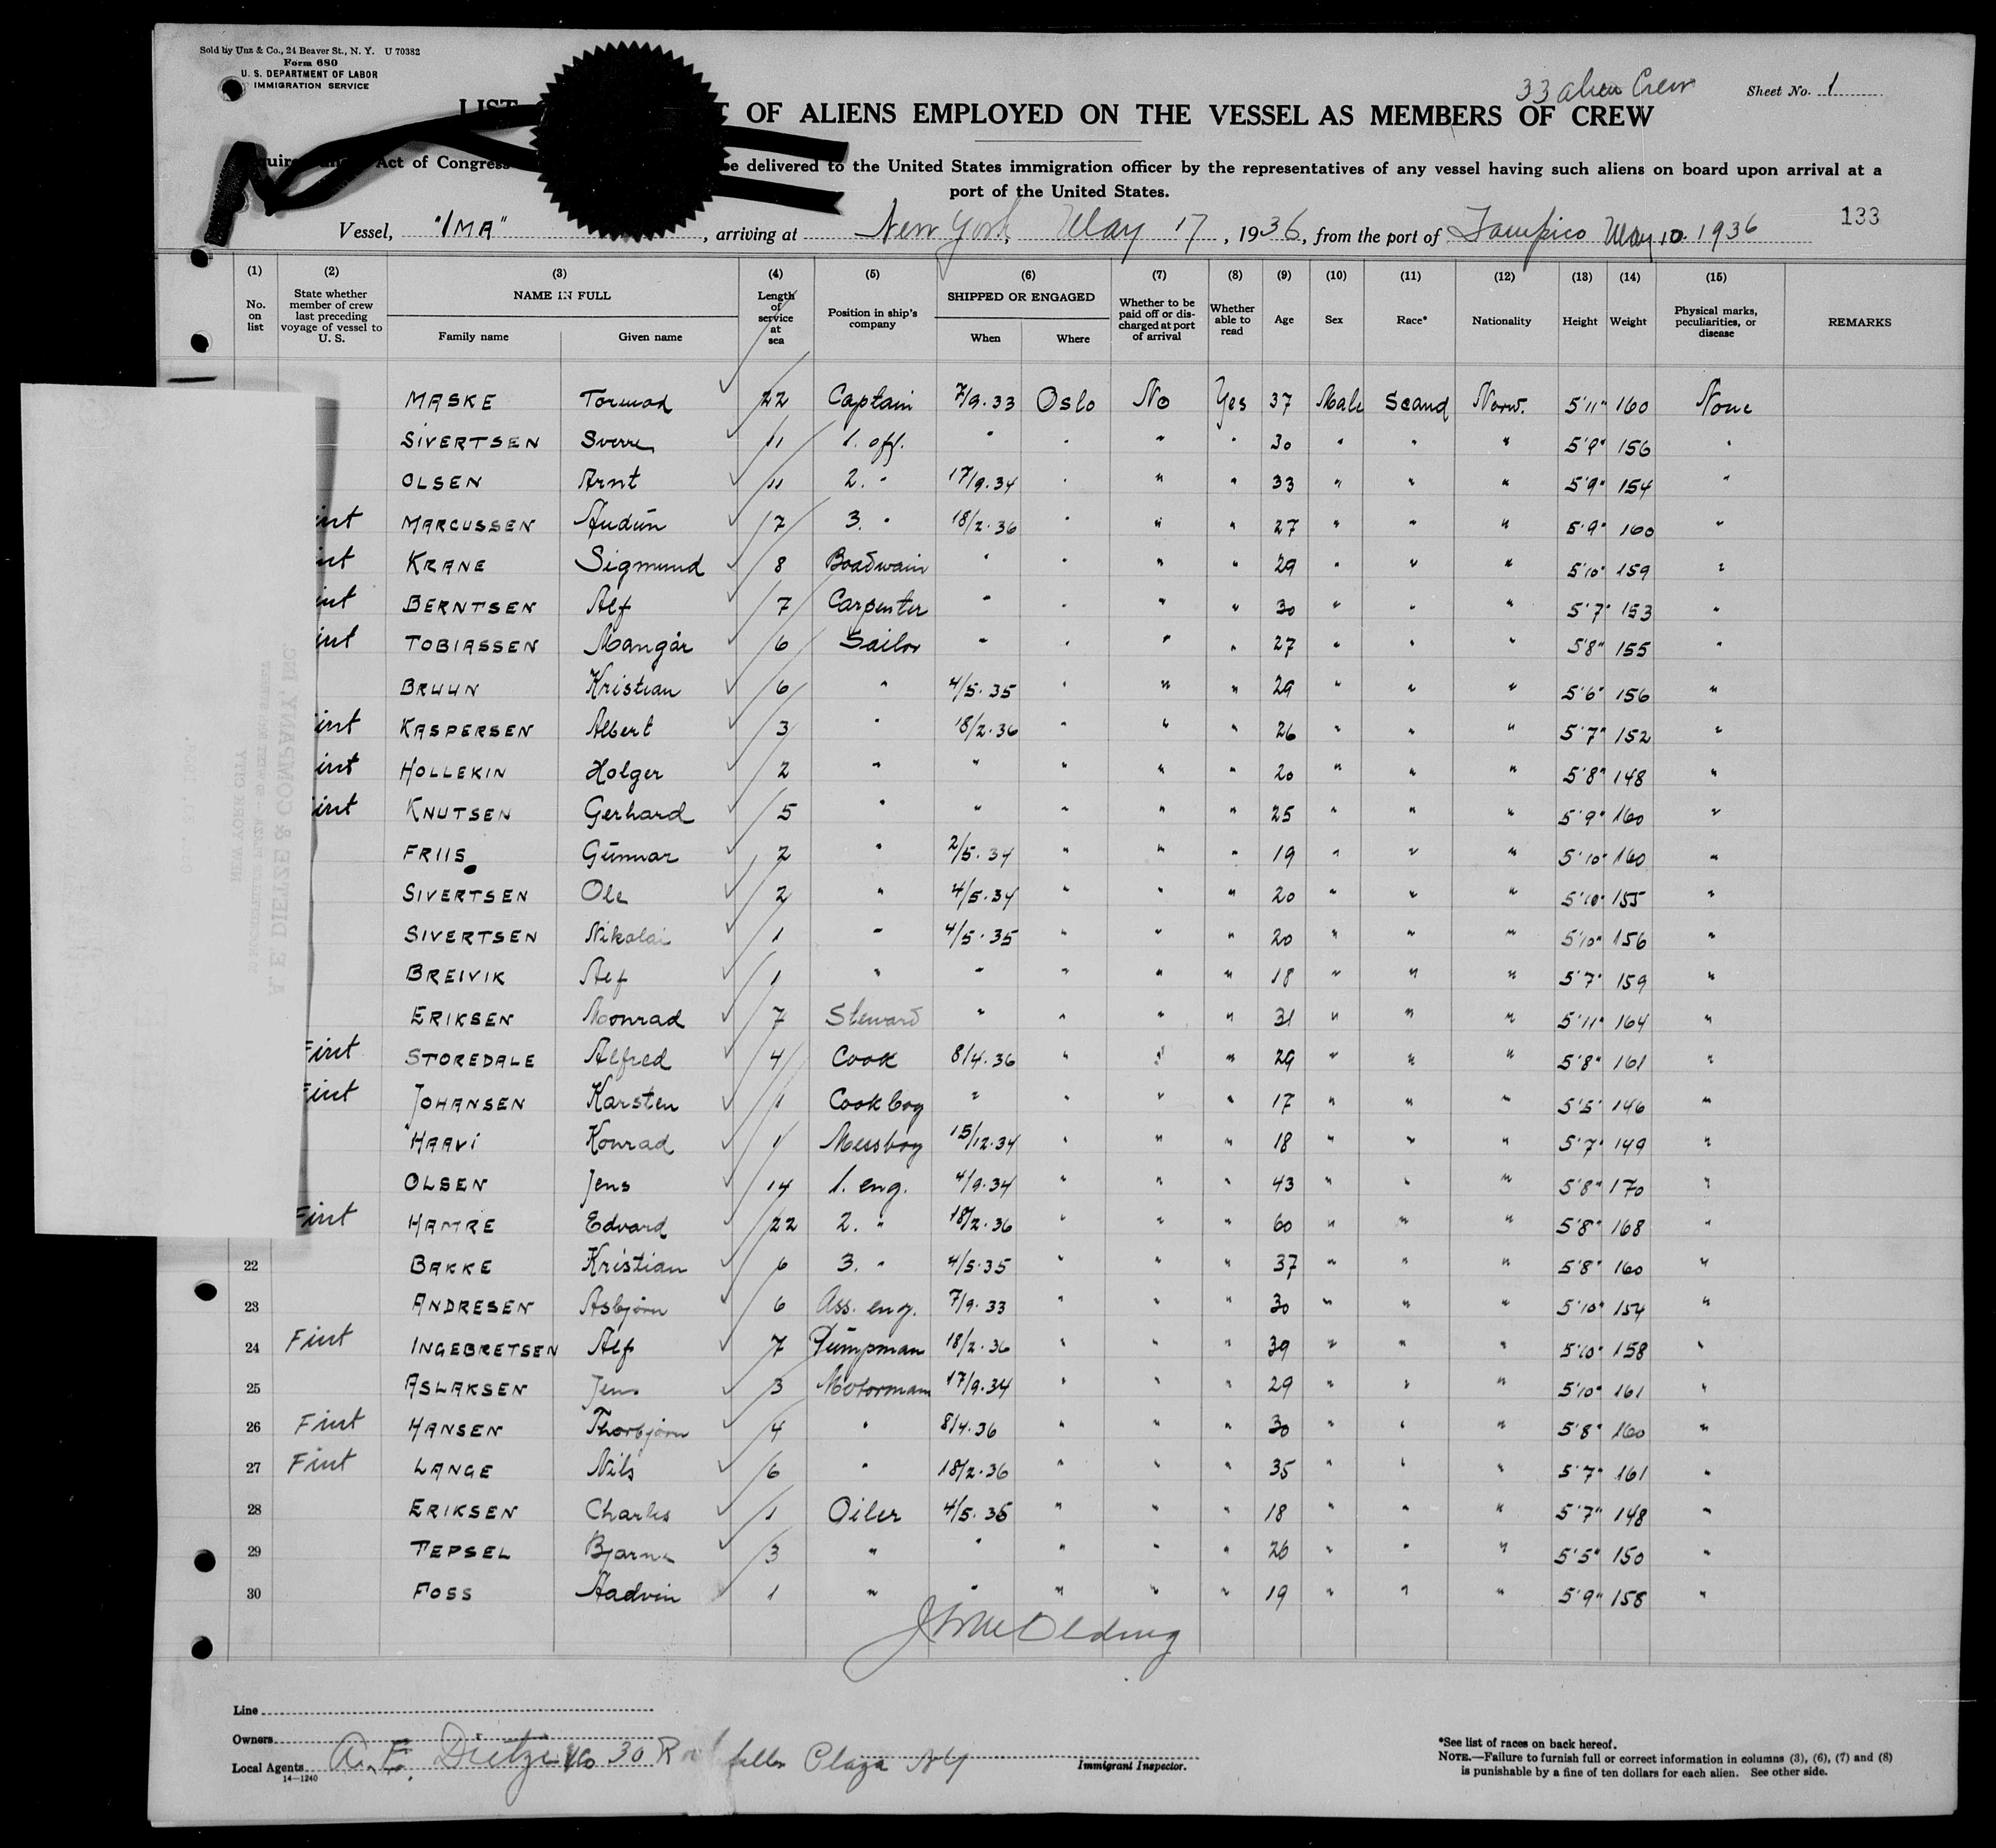 Sold by Unz & Co., 24 Beaver St., N. Y. U 70382
Form 680
U. S. DEPARTMENT OF LABOR
IMMIGRATION SERVICE
33 alien Crew
Sheet No. 1
LIST OF ALIENS EMPLOYED ON THE VESSEL AS MEMBERS OF CREW
Act of Congress be delivered to the United States immigration officer by the representatives of any vessel having such aliens on board upon arrival at a
port of the United States.
133
Vessel, "IMA", arriving at New York, May 17, 1936, from the port of Tampico May 10. 1936
(1) (2) (3) (4) (5) (6) (7) (8) (9) (10) (11) (12) (13) (14) (15)
No. on list
State whether member of crew last preceding voyage of vessel to U. S.
NAME IN FULL
Family name Given name
Length of service at sea
Position in ship's company
SHIPPED OR ENGAGED
When Where
Whether to be paid off or discharged at port of arrival
Whether able to read
Age Sex Race* Nationality Height Weight
Physical marks, peculiarities, or disease
REMARKS
MASKE Tormod 22 Captain 7/9.33 Oslo No Yes 37 Male Scand Norw. 5'11" 160 None
SIVERTSEN Sverre 11 1. off. " " " " 30 " " " 5'9" 156 "
OLSEN Arnt 11 2. " 17/9.34 " " " 33 " " " 5'9" 154 "
MARCUSSEN Audun 7 3. " 18/2.36 " " " 27 " " " 5'9" 160 "
KRANE Sigmund 8 Boadwain " " " " 29 " " " 5'10" 159 "
BERNTSEN Alf 7 Carpenter " " " " 30 " " " 5'7" 153 "
TOBIASSEN Mangår 6 Sailor " " " " 27 " " " 5'8" 155 "
BRUUN Kristian 6 " 4/5.35 " " " 29 " " " 5'6" 156 "
KASPERSEN Albert 3 " 18/2.36 " " " 26 " " " 5'7" 152 "
HOLLEKIN Holger 2 " " " " " 20 " " " 5'8" 148 "
KNUTSEN Gerhard 5 " " " " " 25 " " " 5'9" 160 "
FRIIS Gunnar 2 " 2/5.34 " " " 19 " " " 5'10" 160 "
SIVERTSEN Ole 2 " 4/5.34 " " " 20 " " " 5'10" 155 "
SIVERTSEN Nikolai 1 " 4/5.35 " " " 20 " " " 5'10" 156 "
BREIVIK Alf 1 " " " " " 18 " " " 5'7" 159 "
ERIKSEN Monrad 7 Steward " " " " 31 " " " 5'11" 164 "
First STOREDALE Alfred 4 Cook 8/4.36 " " " 29 " " " 5'8" 161 "
First JOHANSEN Karsten 1 Cook boy " " " " 17 " " " 5'5" 146 "
HAAVI Konrad 1 Messboy 15/12.34 " " " 18 " " " 5'7" 149 "
OLSEN Jens 14 1. eng. 4/9.34 " " " 43 " " " 5'8" 170 "
First HAMRE Edvard 22 2. " 18/2.36 " " " 60 " " " 5'8" 168 "
22 BAKKE Kristian 6 3. " 4/5.35 " " " 37 " " " 5'8" 160 "
23 ANDRESEN Asbjörn 6 Ass. eng. 7/9.33 " " " 30 " " " 5'10" 154 "
24 First INGEBRETSEN Alf 7 Pumpman 18/2.36 " " " 39 " " " 5'10" 158 "
25 ASLAKSEN Jens 3 Motorman 17/9.34 " " " 29 " " " 5'10" 161 "
26 First HANSEN Thorbjörn 4 " 8/4.36 " " " 30 " " " 5'8" 160 "
27 First LANGE Nils 6 " 18/2.36 " " " 35 " " " 5'7" 161 "
28 ERIKSEN Charles 1 Oiler 4/5.35 " " " 18 " " " 5'7" 148 "
29 TEPSEL Bjarne 3 " " " " " 26 " " " 5'5" 150 "
30 FOSS Aadvin 1 " " " " " 19 " " " 5'9" 158 "
Line
Owners
Local Agents A. E. Dietze & Co 30 Rockefeller Plaza NY
Immigrant Inspector.
14—1240
*See list of races on back hereof.
NOTE.—Failure to furnish full or correct information in columns (3), (6), (7) and (8)
is punishable by a fine of ten dollars for each alien. See other side.